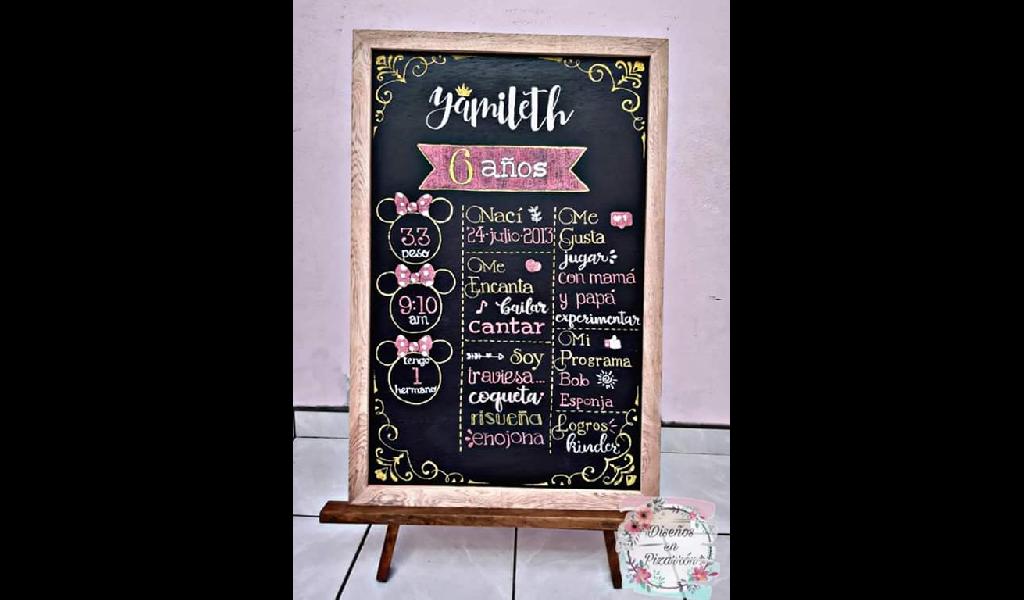 Yamileth
6 años
3.3
peso
9:10
am
tengo
1
hermano
Nací
24·julio·2013
Me
Encanta
bailar
cantar
Soy
traviesa...
coqueta
risueña
enojona
Me
Gusta
jugar
con mamá
y papá
experimentar
Mi
Programa
Bob
Esponja
Logros
kinder
Diseños
en
Pizarrón